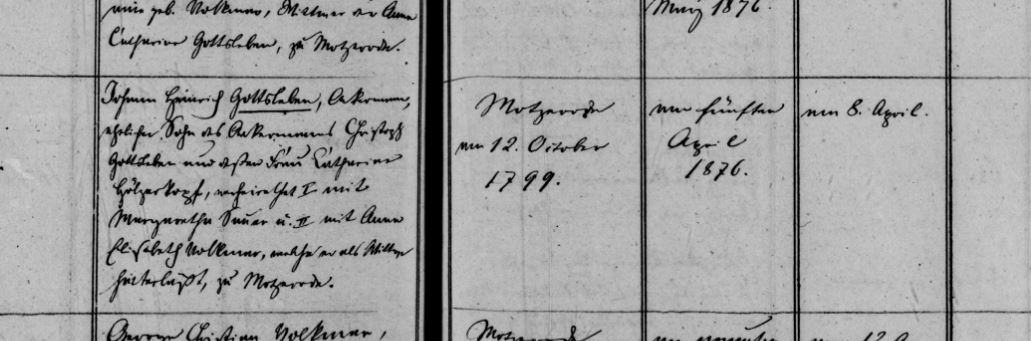 geb. Volkmar, Wittwer der Anna
Catharina Gottsleben, zu Motzerode.
März 1876.
Johann Heinrich Gottsleben, Ackermann,
ehelicher Sohn des Ackermanns Christoph
Gottsleben und dessen Frau Catharina
Hölzerkopf, verheirathet I mit
Margaretha Sauer u. II mit Anna
Elisabeth Volkmar, welche er als Wittwe
hinterläßt, zu Motzerode.
Motzerode
am 12. October
1799.
am fünften
April
1876.
am 8. April.
George Christian Volkmar,
Motzerode
am neunten